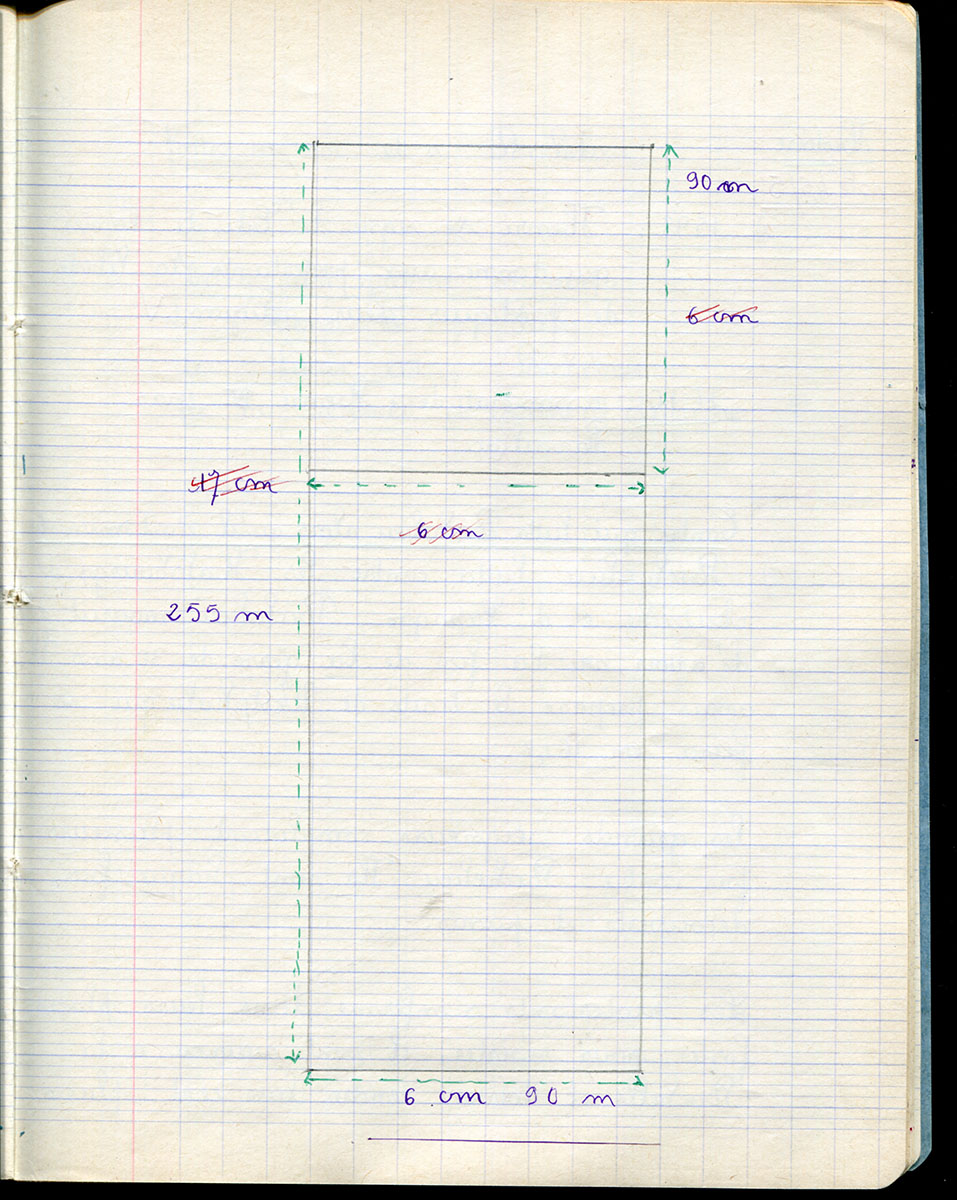 90 m
6 cm
17 cm
6 cm
255 m
6 cm 90 m